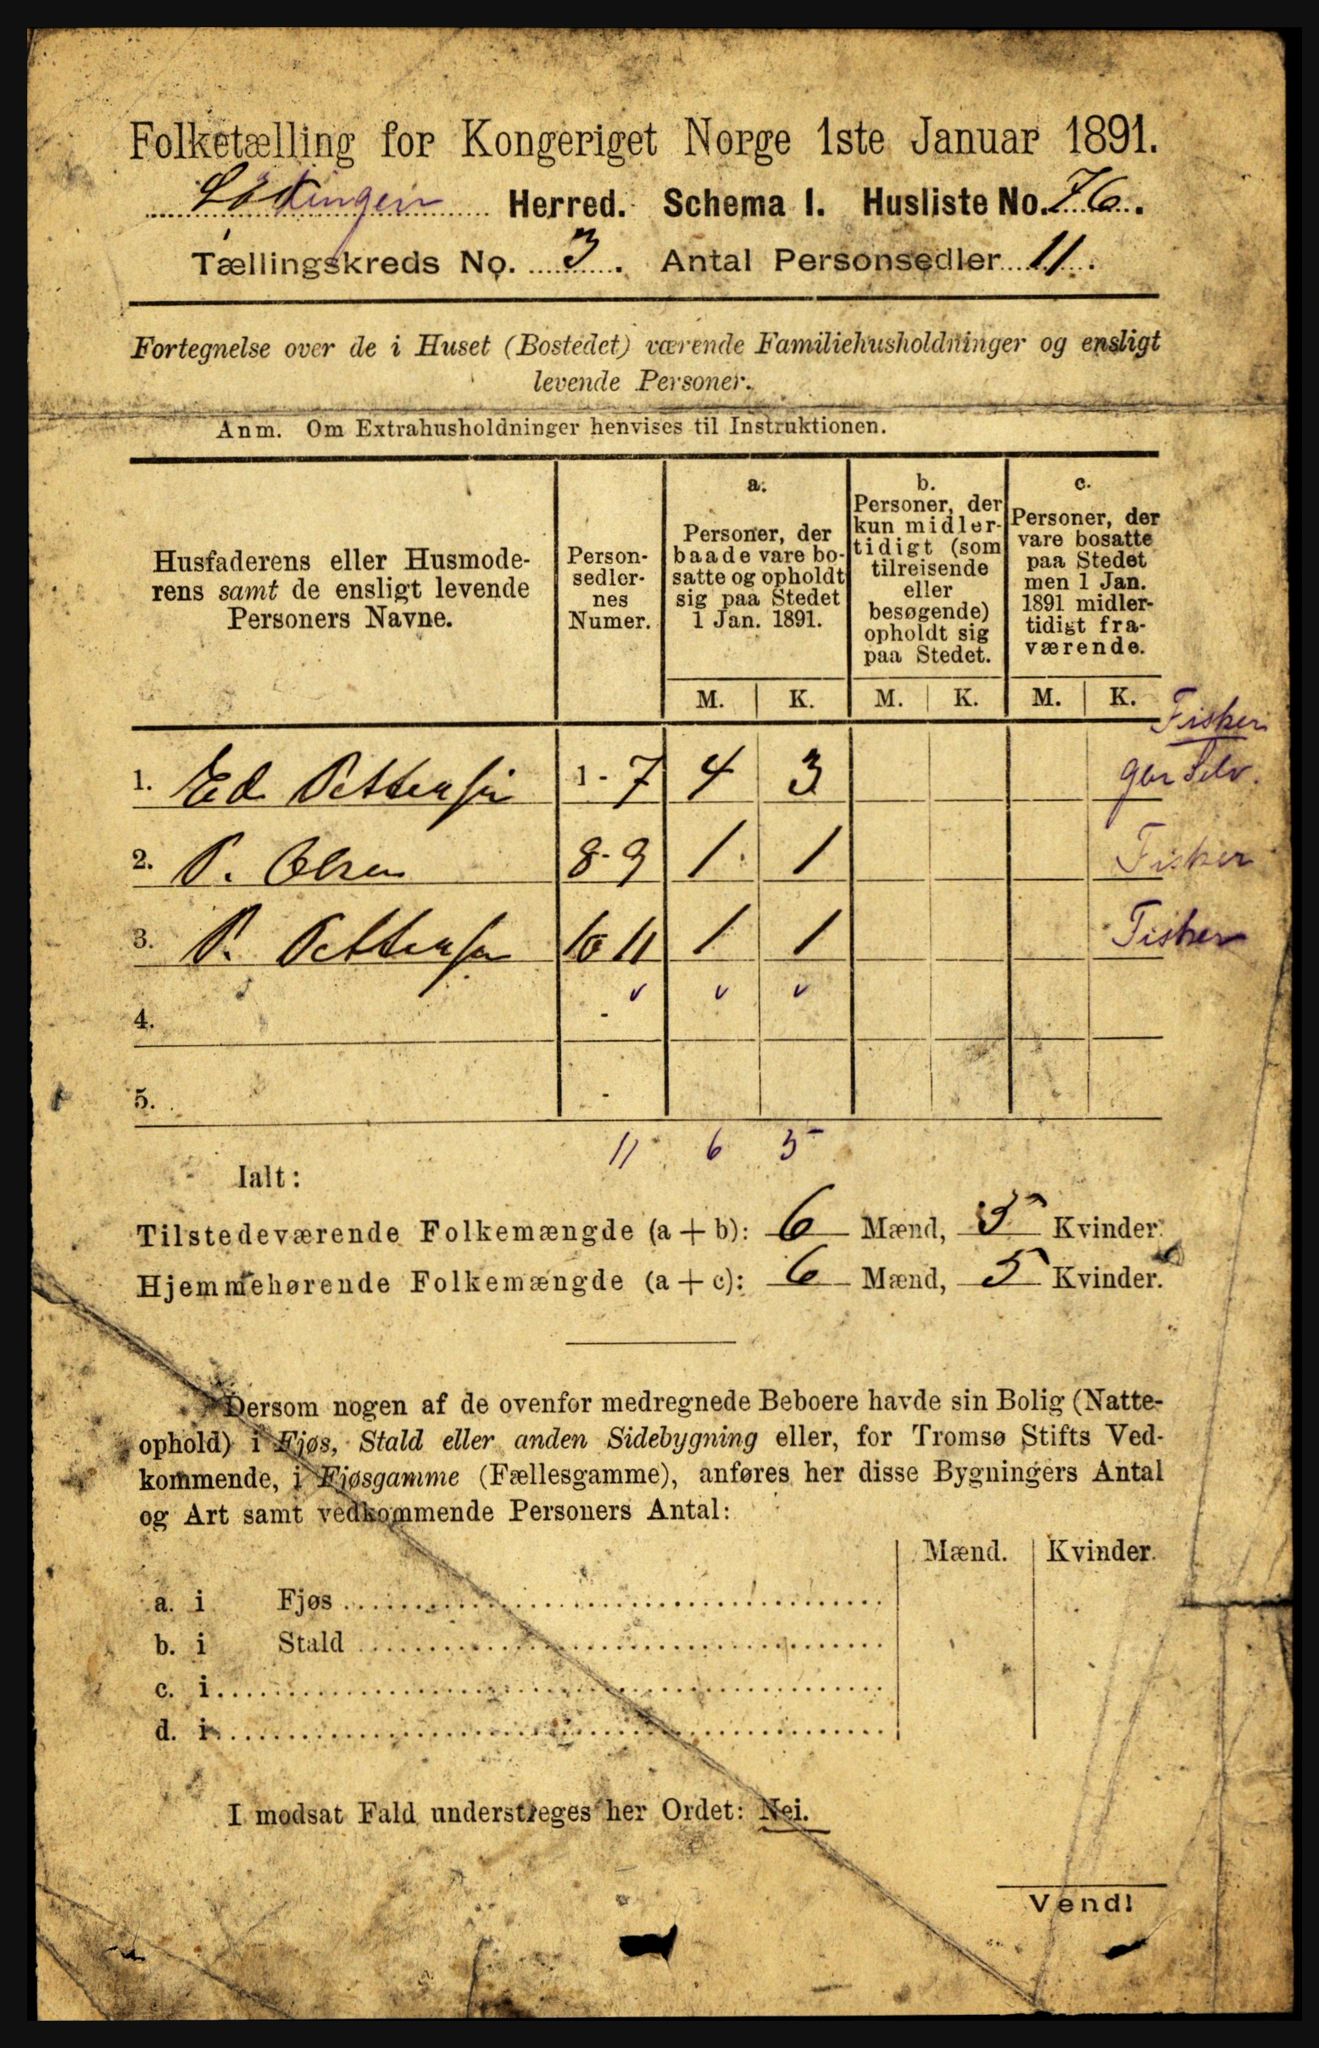 Folketælling for Kongeriget Norge 1ste Januar 1891.
Lødingen Herred. Schema I. Husliste No. 76.
Tællingskreds No. 3. Antal Personsedler 11.
Fortegnelse over de i Huset (Bostedet) værende Familiehusholdninger og ensligt
levende Personer.
Anm. Om Extrahusholdninger henvises til Instruktionen.
Husfaderens eller Husmode-
rens samt de ensligt levende
Personers Navne.
Person-
sedler-
nes
Numer.
a.
Personer, der
baade vare bo-
satte og opholdt
sig paa Stedet
1 Jan. 1891.
b.
Personer, der
kun midler-
tidigt (som
tilreisende
eller
besøgende)
opholdt sig
paa Stedet.
c.
Personer, der
vare bosatte
paa Stedet
men 1 Jan.
1891 midler-
tidigt fra-
værende.
M. K. M. K. M. K.
Fisker
1. Ed. Pettersen 1 - 7 4 3 Selv.
2. P. Olsen 8 - 9 1 1 Fisker
3. P. Pettersen 10 11 1 1 Fisker
4. -
5. -
11 6 5
Ialt:
Tilstedeværende Folkemængde (a + b): 6 Mænd, 5 Kvinder.
Hjemmehørende Folkemængde (a + c): 6 Mænd, 5 Kvinder.
Dersom nogen af de ovenfor medregnede Beboere havde sin Bolig (Natte-
ophold) i Fjøs, Stald eller anden Sidebygning eller, for Tromsø Stifts Ved-
kommende, i Fjøsgamme (Fællesgamme), anføres her disse Bygningers Antal
og Art samt vedkommende Personers Antal:
Mænd. Kvinder.
a. i Fjøs
b. i Stald
c. i
d. i
I modsat Fald understreges her Ordet: Nei.
Vend!